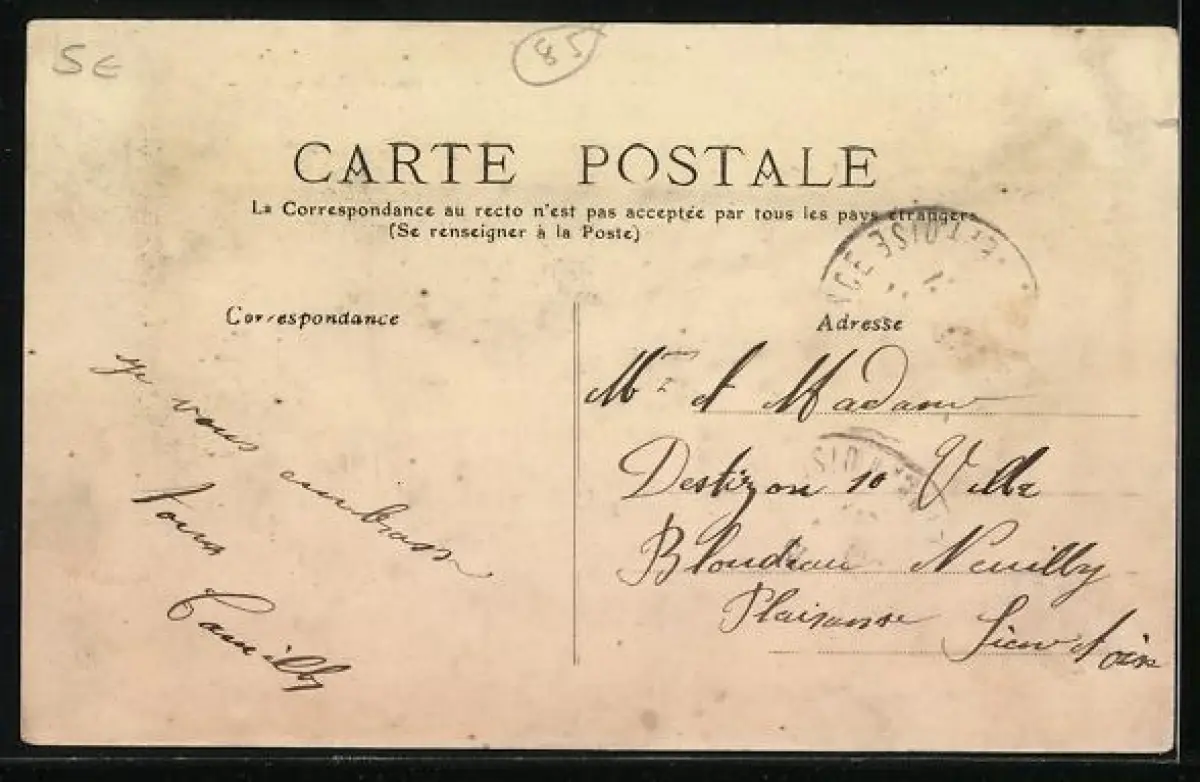 5€
85
CARTE POSTALE
La Correspondance au recto n'est pas acceptée par tous les pays étrangers
(Se renseigner à la Poste)
Correspondance
je vous embrasse
tous
Camille
Adresse
Mr et Madame
Destizon 10 Villa
Blondeau Neuilly
Plaisanse
Seine et oise